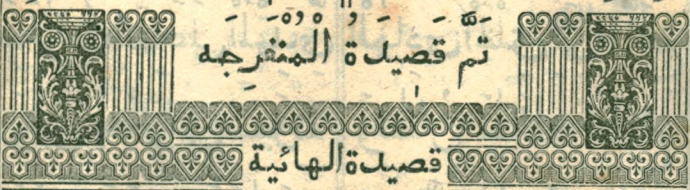 تَمَّ قَصِيدَةُ الْمُنْفَرِجَه
قصيدة الهائية